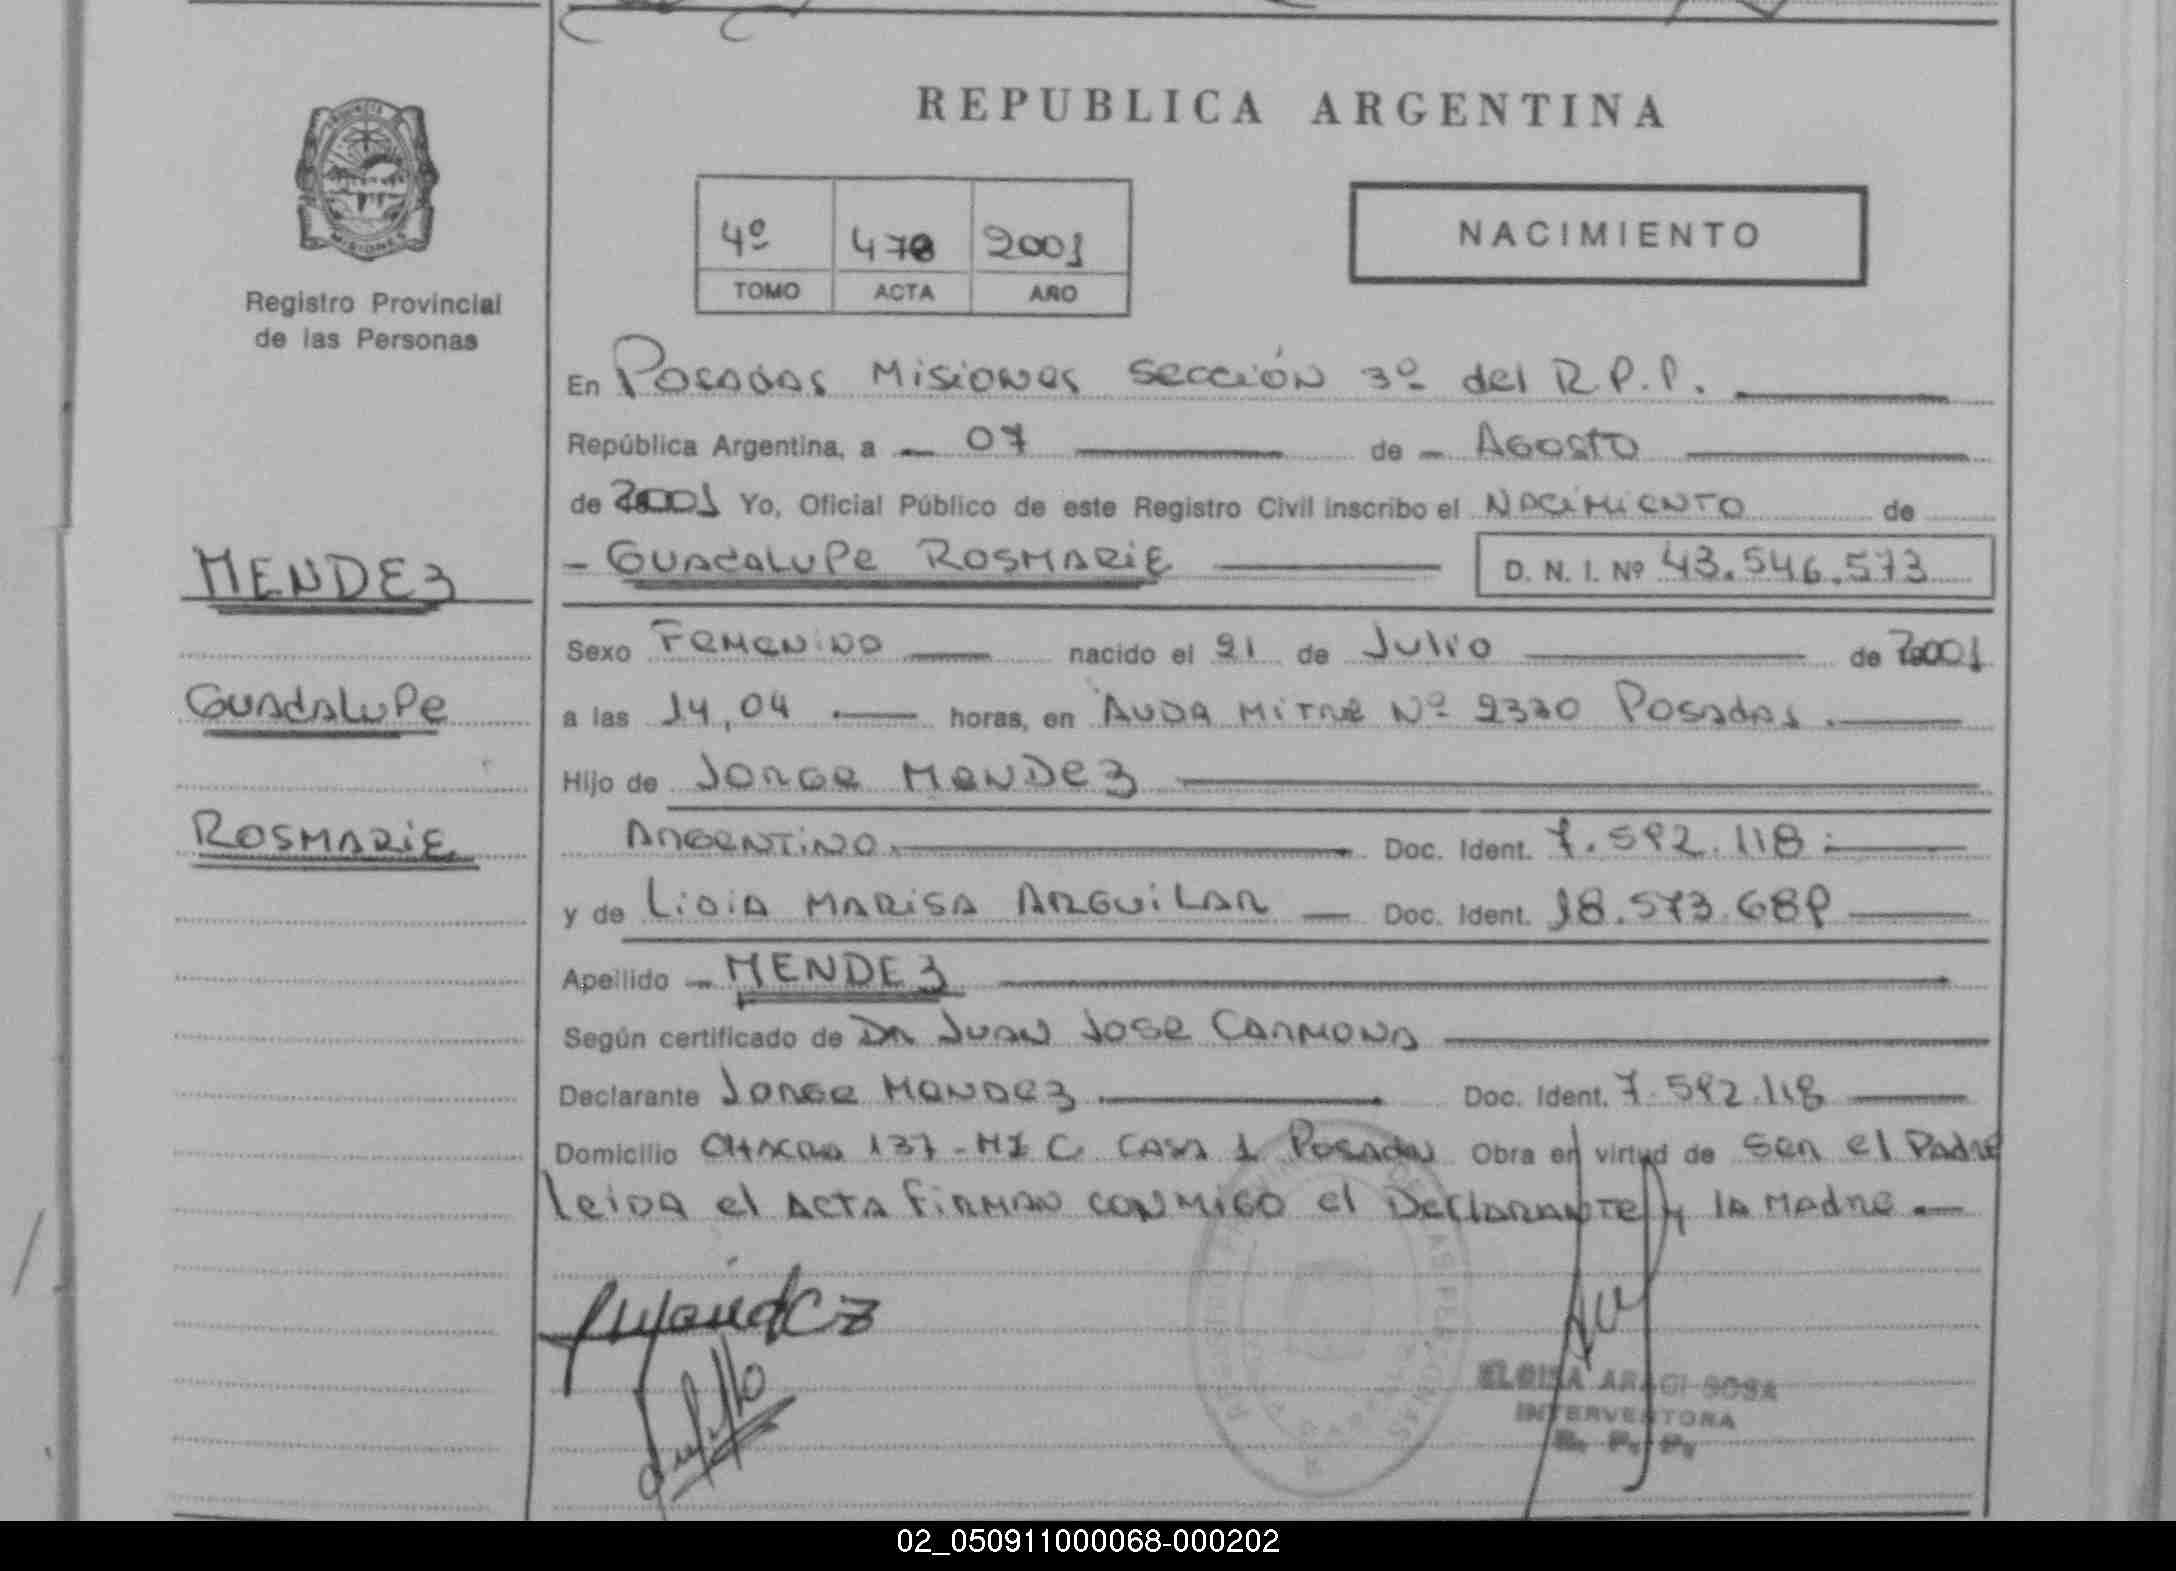 REPUBLICA ARGENTINA
NACIMIENTO
4º 478 2001
TOMO ACTA AÑO
Registro Provincial
de las Personas
En Posadas Misiones Sección 3º del R.P.P.
República Argentina, a 07 de Agosto
de 2001 Yo, Oficial Público de este Registro Civil inscribo el Nacimiento de
MENDEZ
Guadalupe Rosmarie D. N. I. Nº 43.546.573
Sexo Femenino nacido el 21 de Julio de 2001
Guadalupe
a las 14,04 horas, en Avda Mitre Nº 2370 Posadas
Hijo de Jorge Mendez
Rosmarie
Argentino Doc. Ident. 7.592.118
y de Lidia Marisa Arguilar Doc. Ident. 18.573.689
Apellido MENDEZ
Según certificado de Dr Juan Jose Carmona
Declarante Jorge Mendez Doc. Ident. 7.592.118
Domicilio Chacra 137 - C Casa 1 Posadas Obra en virtud de Ser el Padre
leida el Acta firman conmigo el Declarante y la Madre
ELOISA ARAGI SOSA
INTERVENTORA
R. P. P.
02_050911000068-000202